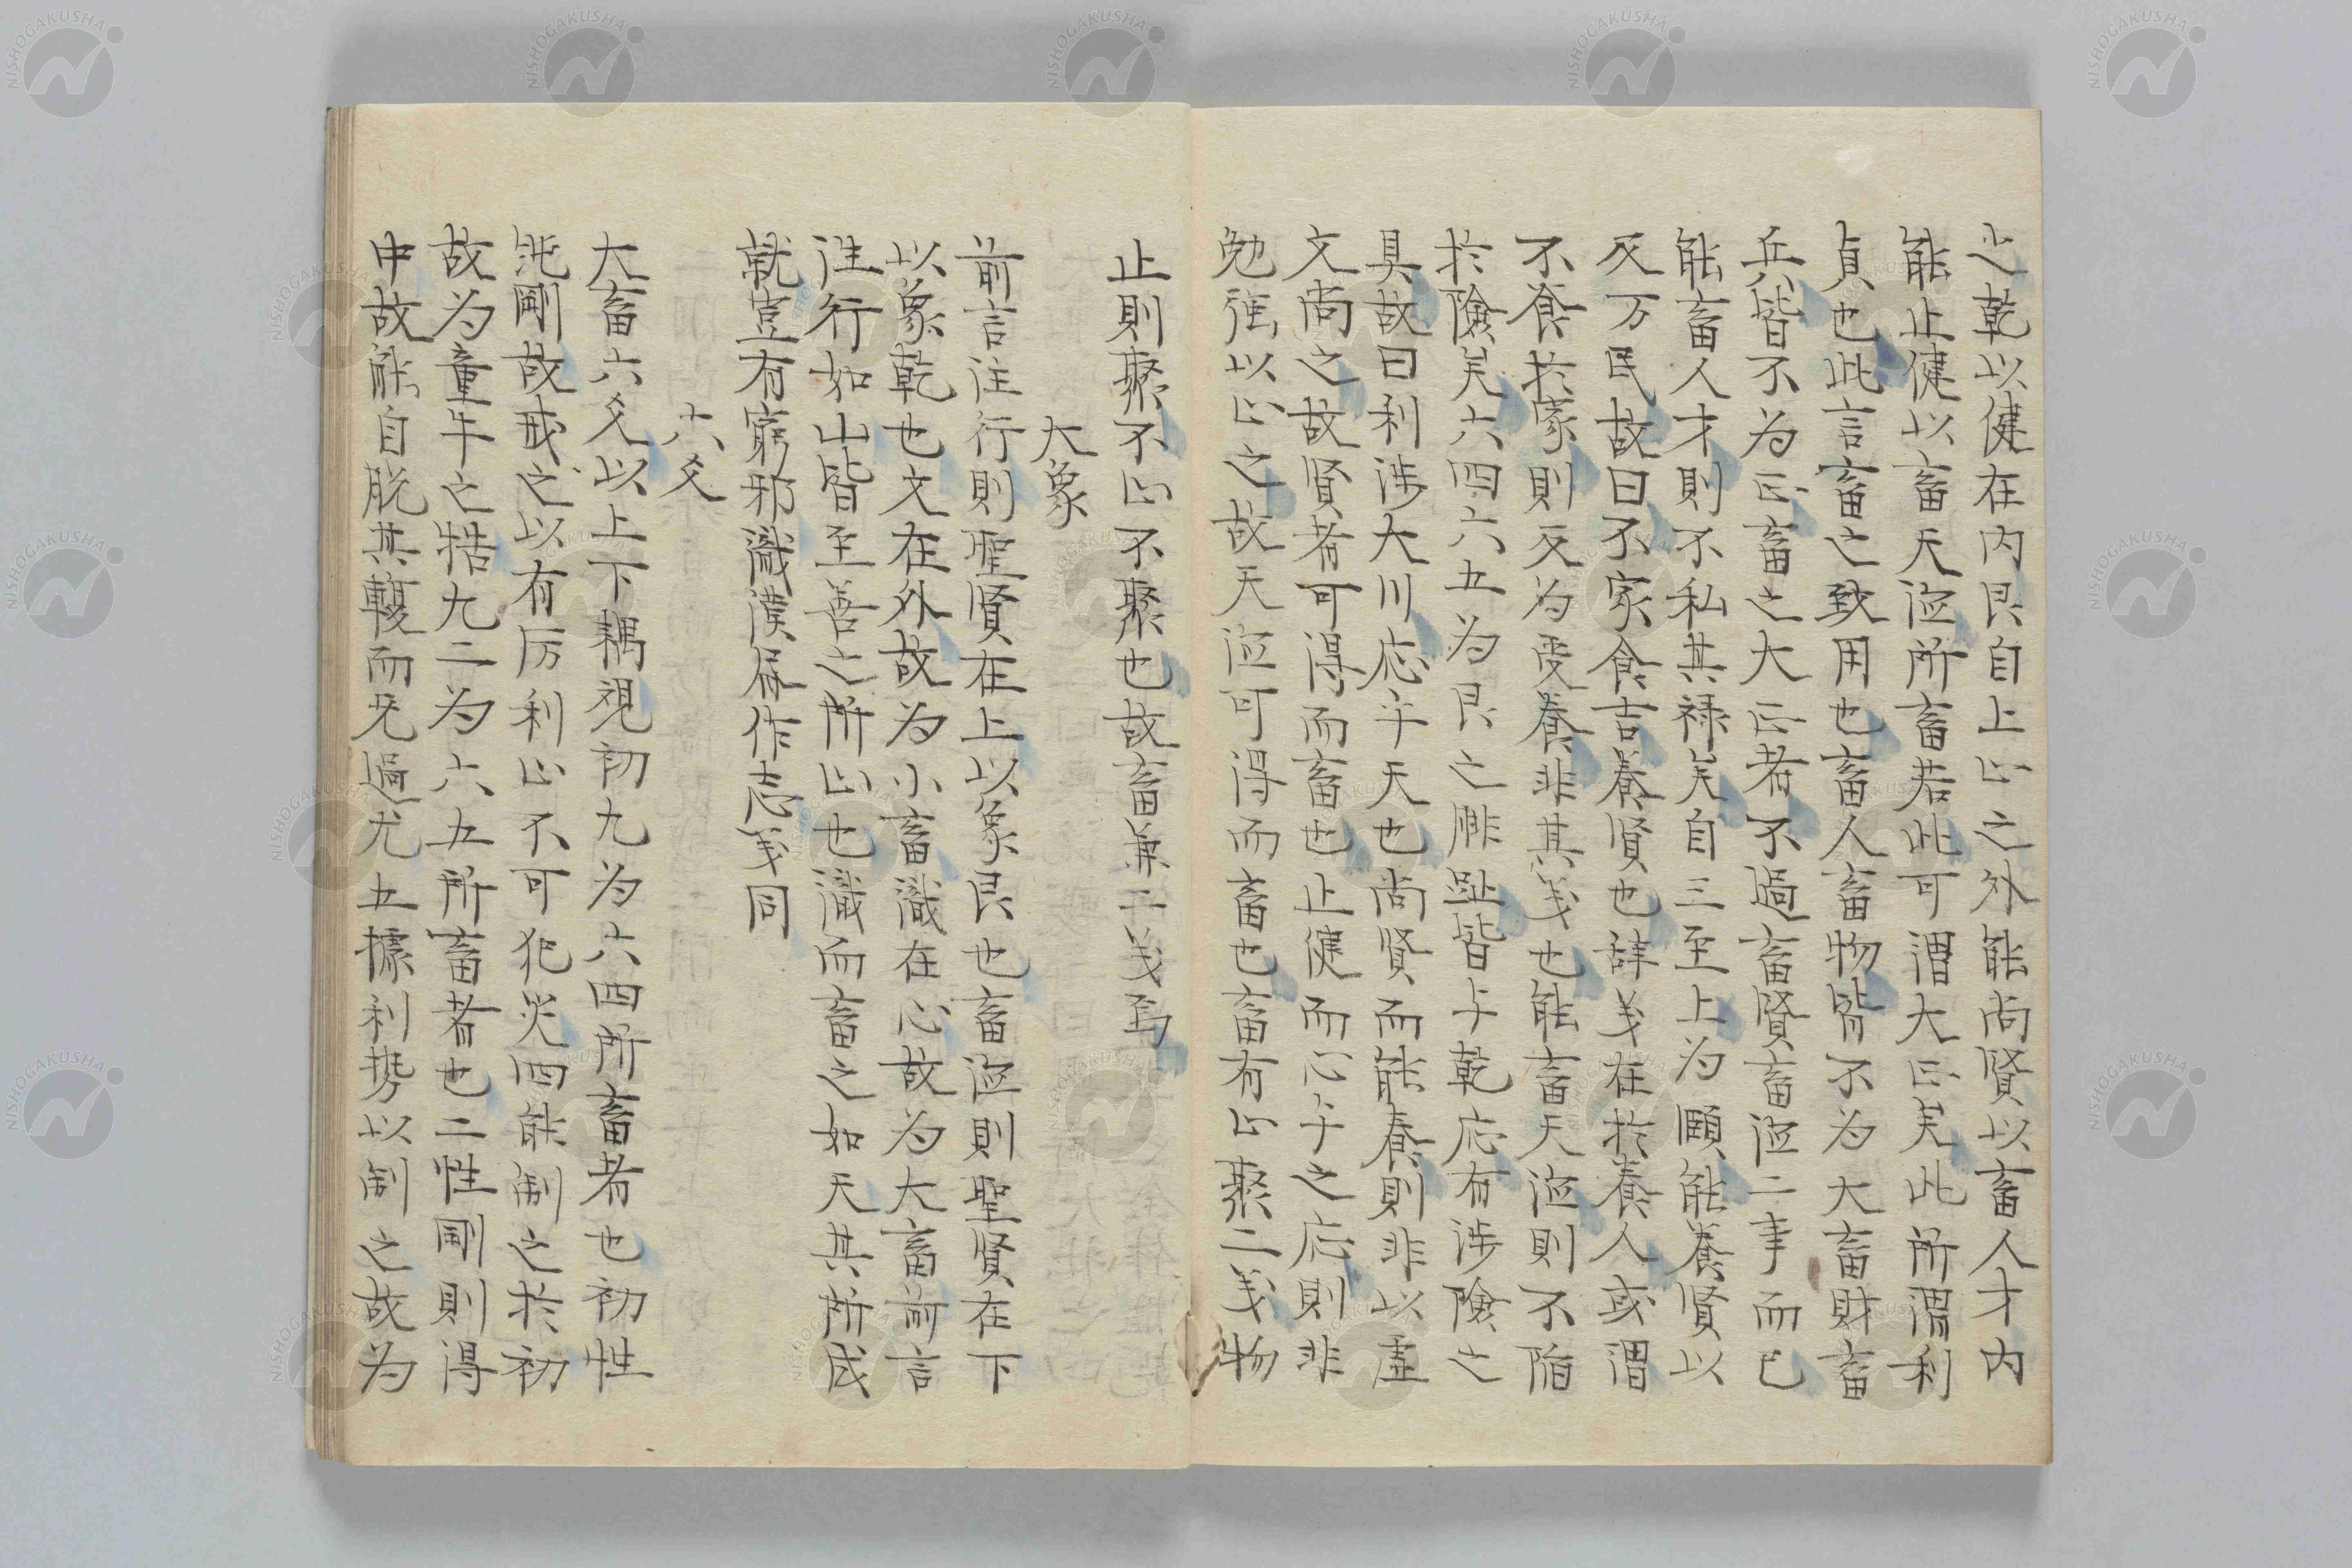 之乾以健在内艮自上止之外能尚賢以畜人才内
能止健以畜天徳所畜若此可謂大正矣此所謂利
貞也此言畜之致用也畜人畜物皆不为大畜財畜
兵皆不为正畜之大正者不過畜賢畜徳二事而已
能畜人才則不私其禄矣自三至上为頤能養賢以
及万民故曰不家食吉養賢也辞義在於養人或謂
不食於家則反为受養非其義也能畜天徳則不陥
於険矣六四六五为艮之腓趾皆与乾応有渉険之
具故曰利渉大川応乎天也尚賢而能養則非以虚
文尚之故賢者可得而畜也止健而心乎之応則非
勉強以止之故天徳可得而畜也畜有止聚二義物
止則聚不止不聚也故畜兼二義焉
大象
前言往行則聖賢在上以象艮也畜徳則聖賢在下
以象乾也文在外故为小畜識在心故为大畜前言
往行如山皆至善之所止也識而畜之如天其所成
就豈有窮邪識漢届作志義同
六爻
大畜六爻以上下耦視初九为六四所畜者也初性
純剛故戒之以有厉利止不可犯災四能制之於初
故为童牛之牿九二为六五所畜者也二性剛則得
中故能自脱其輹而无過尤五據利勢以制之故为